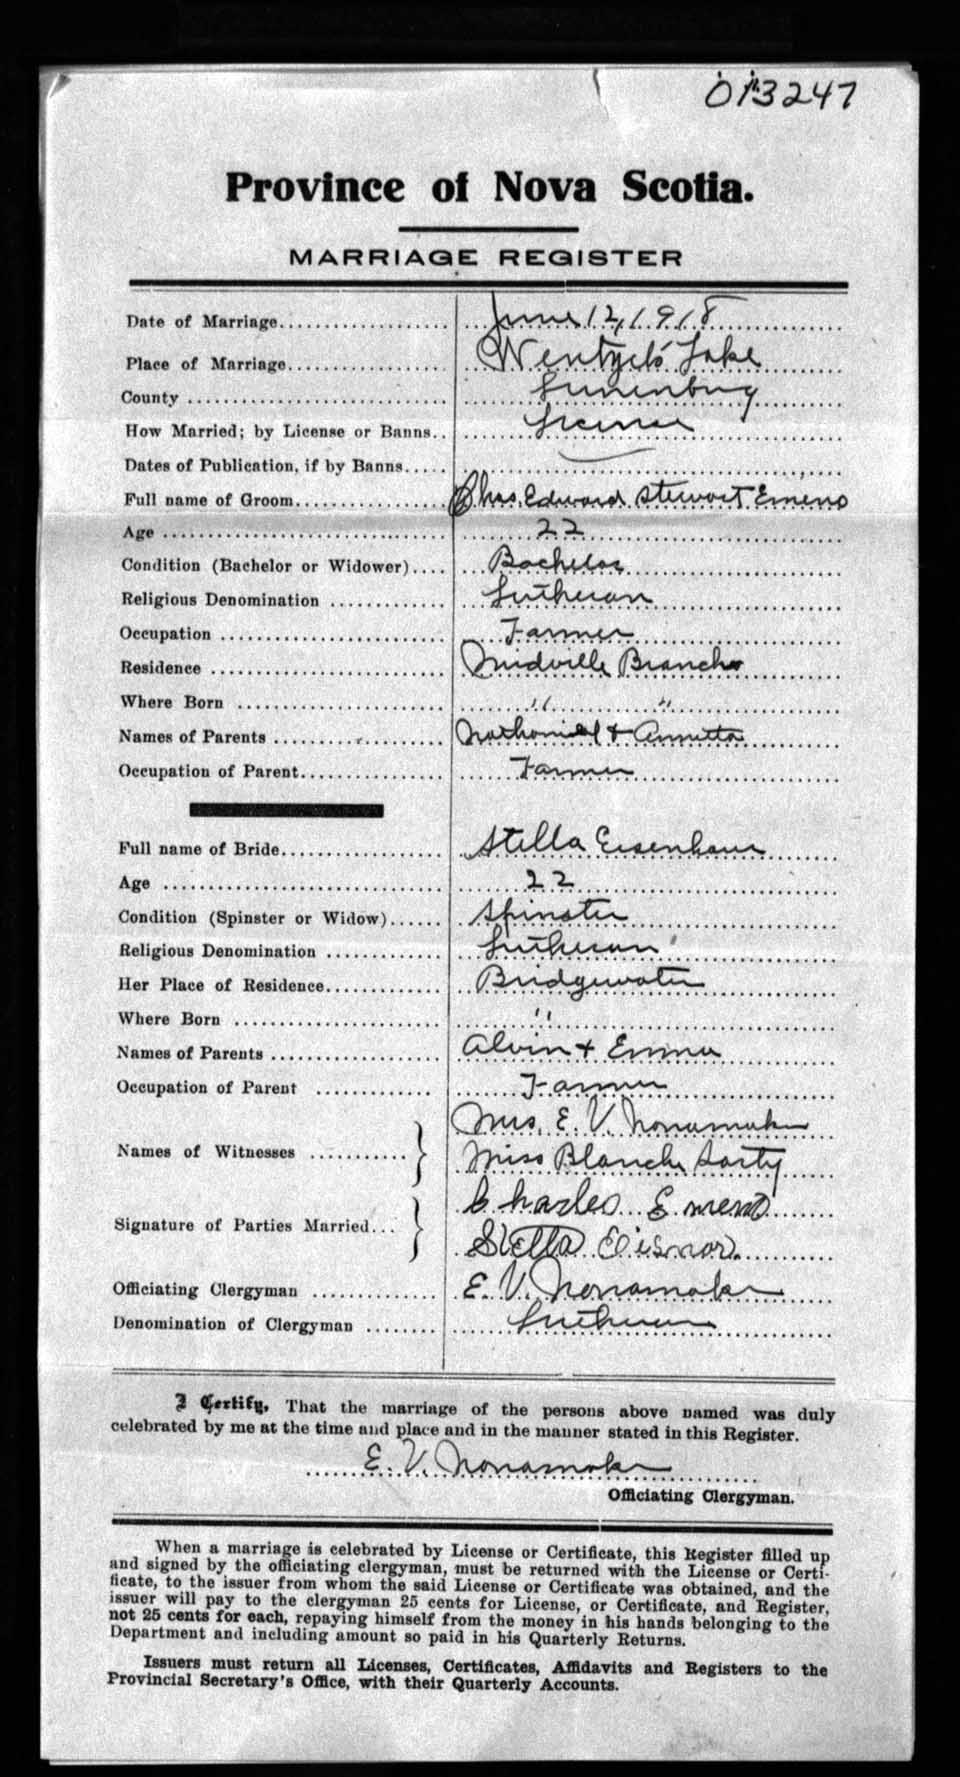 013247
Province of Nova Scotia.
MARRIAGE REGISTER
Date of Marriage.................... June 12, 1918
Place of Marriage.................... Wentzels Lake
County .................... Lunenburg
How Married; by License or Banns.. License
Dates of Publication, if by Banns.....
Full name of Groom.................... Chas. Edward Stewart Emeno
Age .................... 22
Condition (Bachelor or Widower).... Bachelor
Religious Denomination ............. Lutheran
Occupation .................... Farmer
Residence .................... Midville Branch
Where Born .................... " "
Names of Parents .................... Nathaniel & Annetta
Occupation of Parent.................... Farmer
Full name of Bride.................... Stella Eisenhaur
Age .................... 22
Condition (Spinster or Widow)...... Spinster
Religious Denomination ............. Lutheran
Her Place of Residence............. Bridgewater
Where Born .................... "
Names of Parents .................... Alvin & Emma
Occupation of Parent ............. Farmer
Names of Witnesses ........... } Mrs. E. V. Nonamaker
Miss Blanche Sarty
Signature of Parties Married... } Charles Emeno
Stella Eisnor.
Officiating Clergyman ............. E. V. Nonamaker
Denomination of Clergyman ........ Lutheran
I Certify, That the marriage of the persons above named was duly
celebrated by me at the time and place and in the manner stated in this Register.
E. V. Nonamaker
Officiating Clergyman.
When a marriage is celebrated by License or Certificate, this Register filled up
and signed by the officiating clergyman, must be returned with the License or Certi-
ficate, to the issuer from whom the said License or Certificate was obtained, and the
issuer will pay to the clergyman 25 cents for License, or Certificate, and Register,
not 25 cents for each, repaying himself from the money in his hands belonging to the
Department and including amount so paid in his Quarterly Returns.
Issuers must return all Licenses, Certificates, Affidavits and Registers to the
Provincial Secretary's Office, with their Quarterly Accounts.